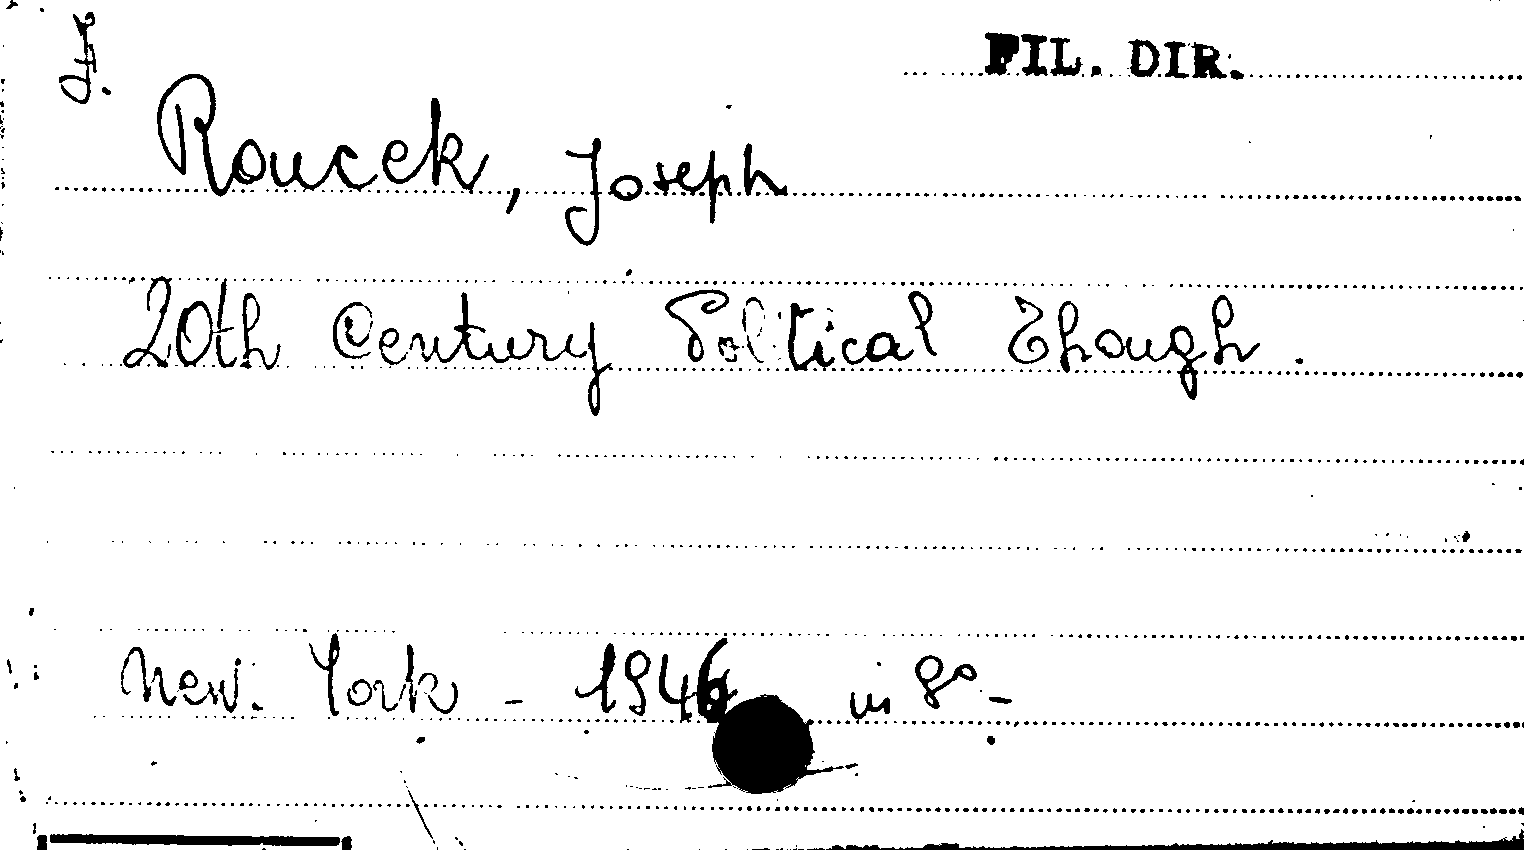 F.
FIL. DIR.
Roucek, Joseph
20th Century Political Though.
New. York - 1946 in 8º -